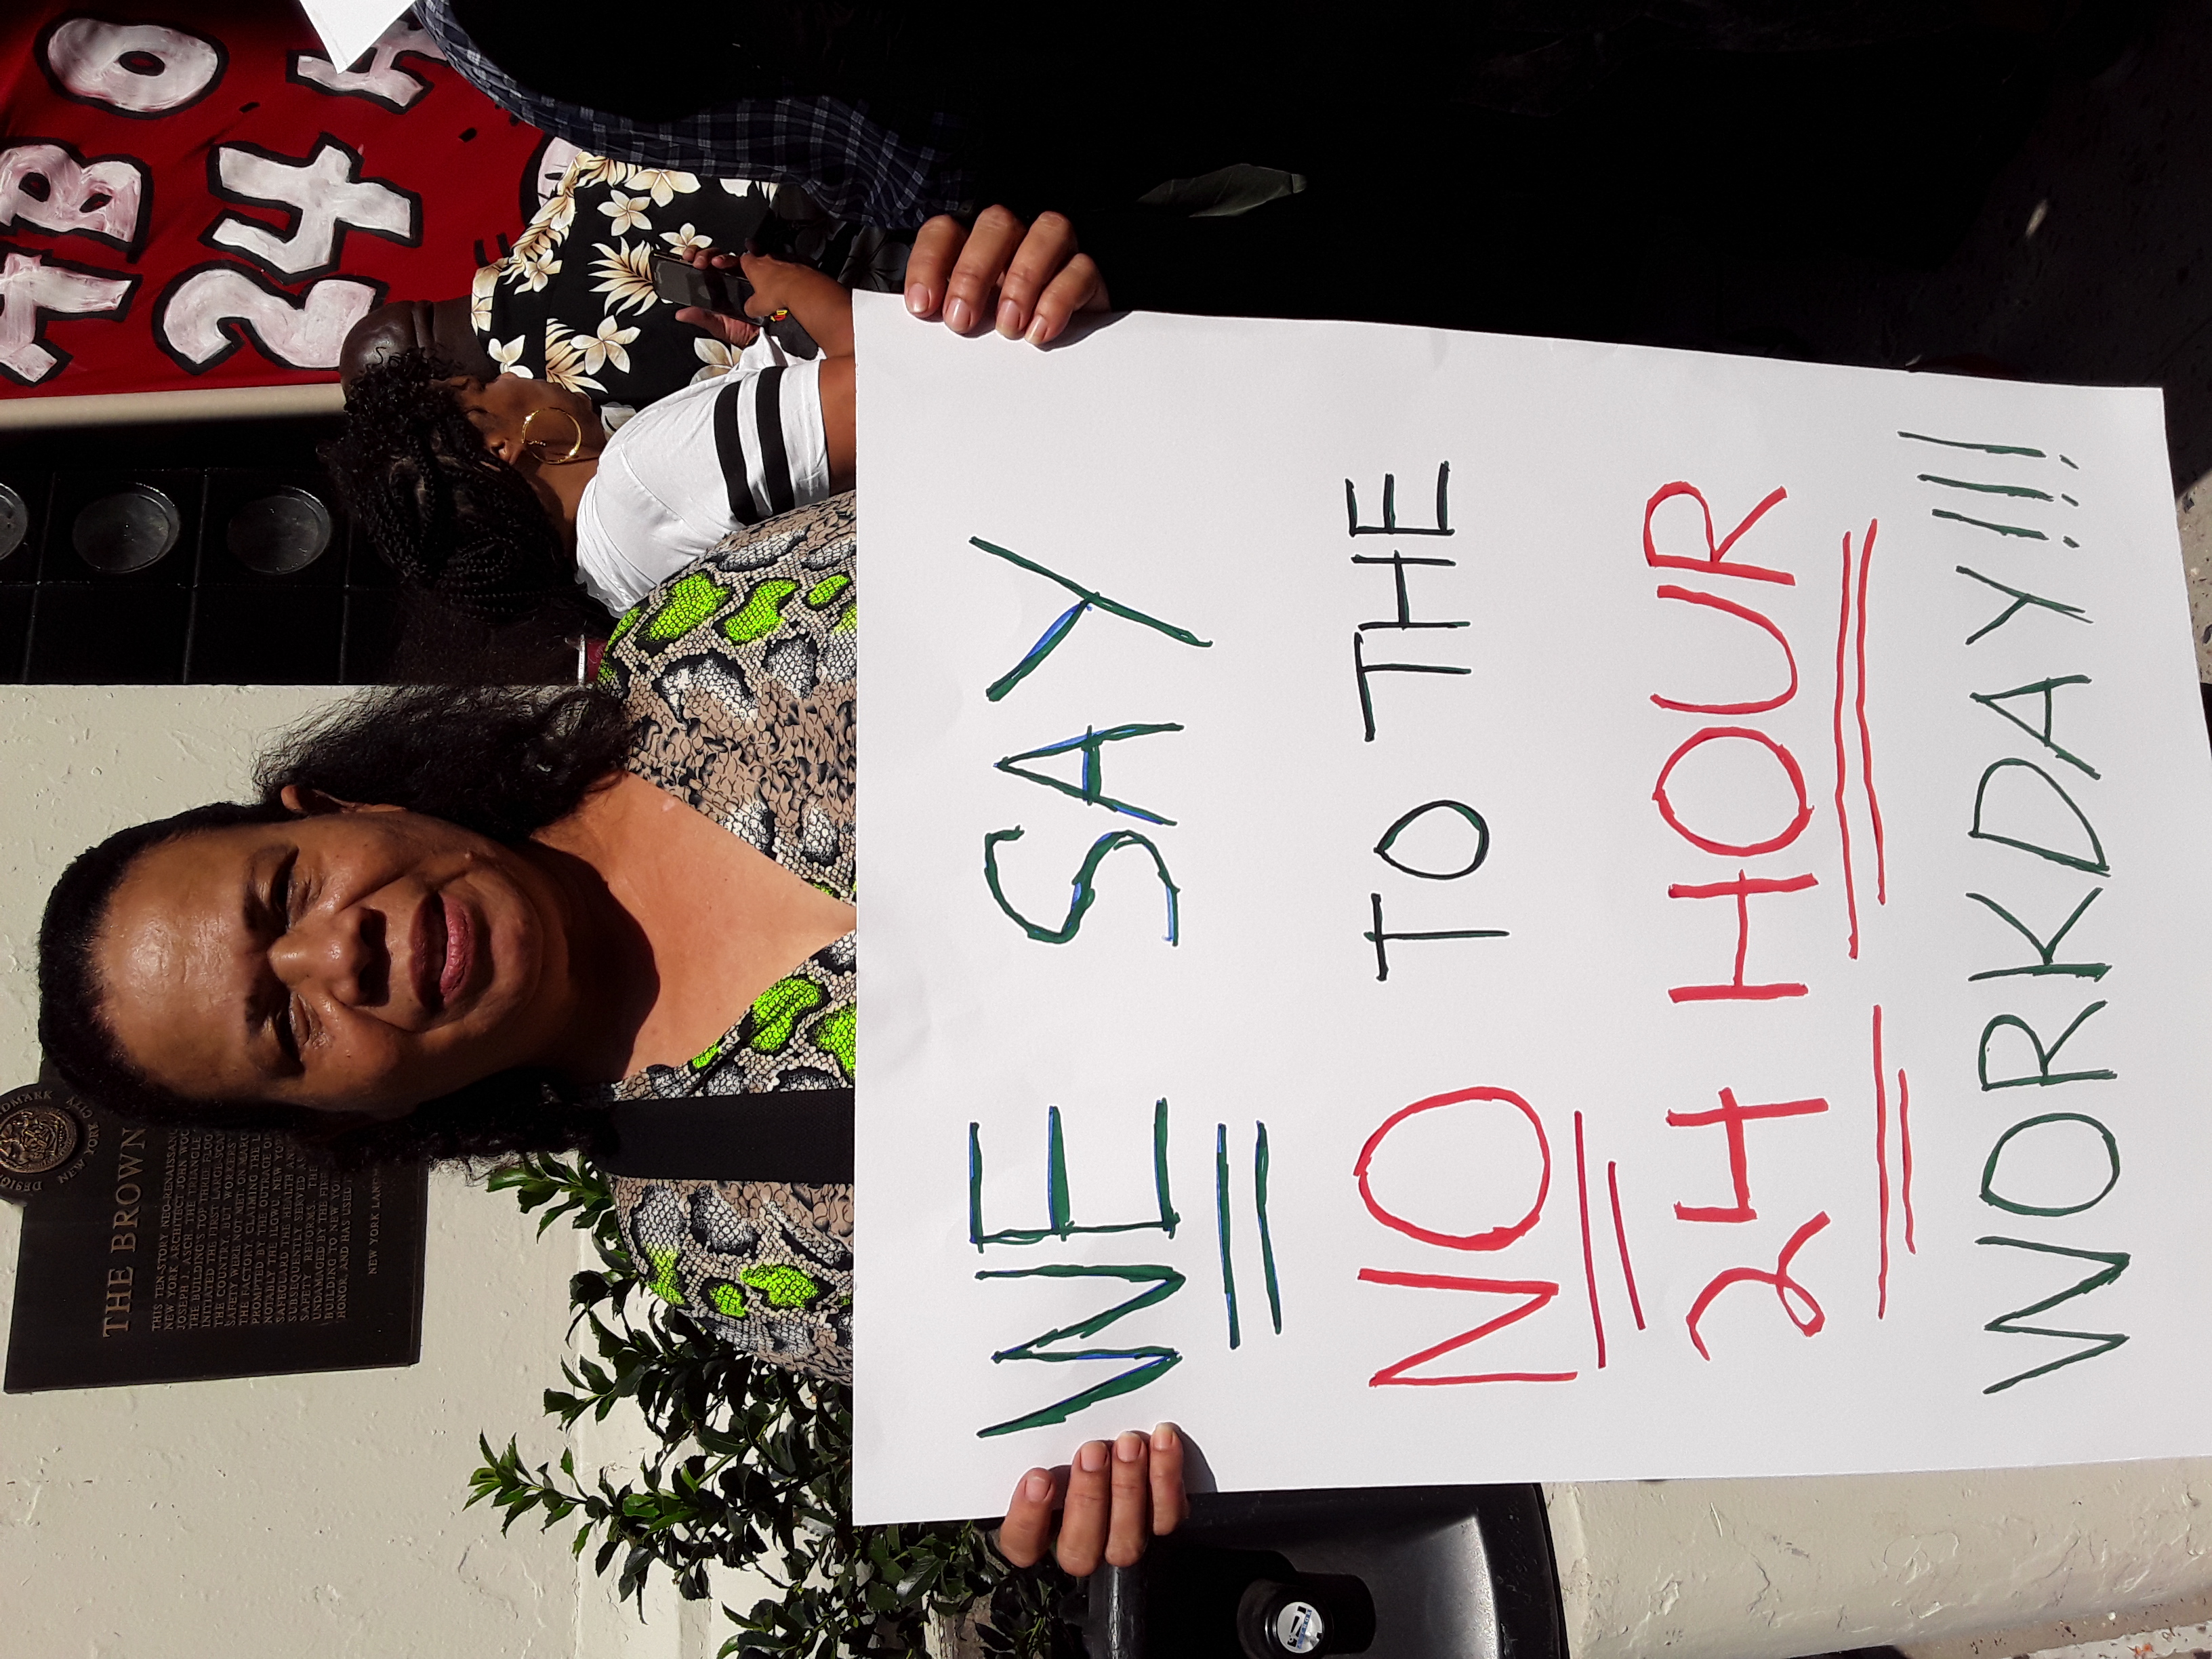 NEW YORK CITY
THE BROWN
THIS TEN-STORY NEO-RENAISSANC
NEW YORK ARCHITECT JOHN WOO
JOSEPH J. ASCH. THE TRIANGLE
THE BUILDING'S TOP THREE FLOO
INITIATED THE FIRST LARGE-SCA
THE COUNTRY, BUT WORKERS'
SAFETY WERE NOT MET. ON MARC
THE FACTORY, CLAIMING THE L
PROMPTED BY THE OUTRAGE O
NOTABLY THE ILGWU, NEW YOR
SAFEGUARD THE HEALTH AN
SUBSEQUENTLY SERVED AS
SAFETY REFORMS. THE
UNDAMAGED BY THE FIR
BUILDING TO NEW YO
HONOR, AND HAS USED
NEW YORK LAND
ABO
24 H
WE SAY
NO TO THE
24 HOUR
WORKDAY!!!